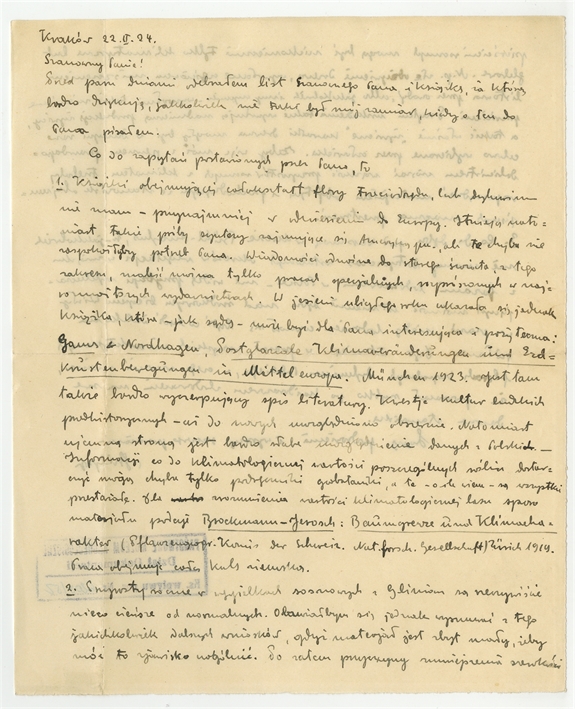 Kraków 22.II.24.
Szanowny Panie!
Przed paru dniami odebrałem list Szanownego Pana i książkę, za którą
bardzo dziękuję, jakkolwiek nie taki był mój zamiar, kiedy o tem do
Pana pisałem.
Co do zapytań postawionych przez Pana, to
1. Książki obejmującej całokształt flory trzeciorzędu, lub dyluwium
nie mam – przynajmniej w odniesieniu do Europy. Istnieją nato-
miast takie próby syntezy zajmujące się Ameryką, ale te chyba nie
zaspokoiłyby potrzeb Pana. Wiadomości odnośne do starego świata, z tego
zakresu, znaleźć można tylko w pracach specjalnych, rozproszonych w naj-
rozmaitszych wydawnictwach. W jesieni ubiegłego roku ukazała się jednak
książka, która – jak sądzę – może być dla Pana interesująca i pożyteczna:
Gams & Nordhagen, Postglaziale Klimaveränderungen und Erd-
krustenbewegungen in Mitteleuropa. München 1923. Jest tam
także bardzo wyczerpujący spis literatury. Kwestja kultur ludzkich
przedhistorycznych – aż do nowych uwzględniona obszernie. Natomiast
ujemną stroną jest bardzo słabe uwzględnienie danych z Polski. –
Informacyj co do klimatologicznej wartości poszczególnych roślin dostar-
czyć mogą chyba tylko podręczniki geobotaniki, a te – o ile wiem – są wszystkie
przestarzałe. Dla zrozumienia wartości klimatologicznej lasu sporo
materjału podaje Brockmann-Jerosch: Baumgrenze und Klimacha-
rakter (Pflanzengeogr. Komis. der Schweiz. Naturforsch. Gesellschaft) Zürich 1919.
Praca obejmuje całą kulę ziemską.
2. Przyrosty roczne w węgielkach sosnowych z są rzeczywiście
nieco cieńsze od normalnych. Obawiałbym się jednak wysnuwać z tego
jakichkolwiek dalszych wniosków, gdyż materjał jest zbyt mały, żeby
móc to zjawisko uogólnić. Co zatem przyczyny zmniejszenia szerokości